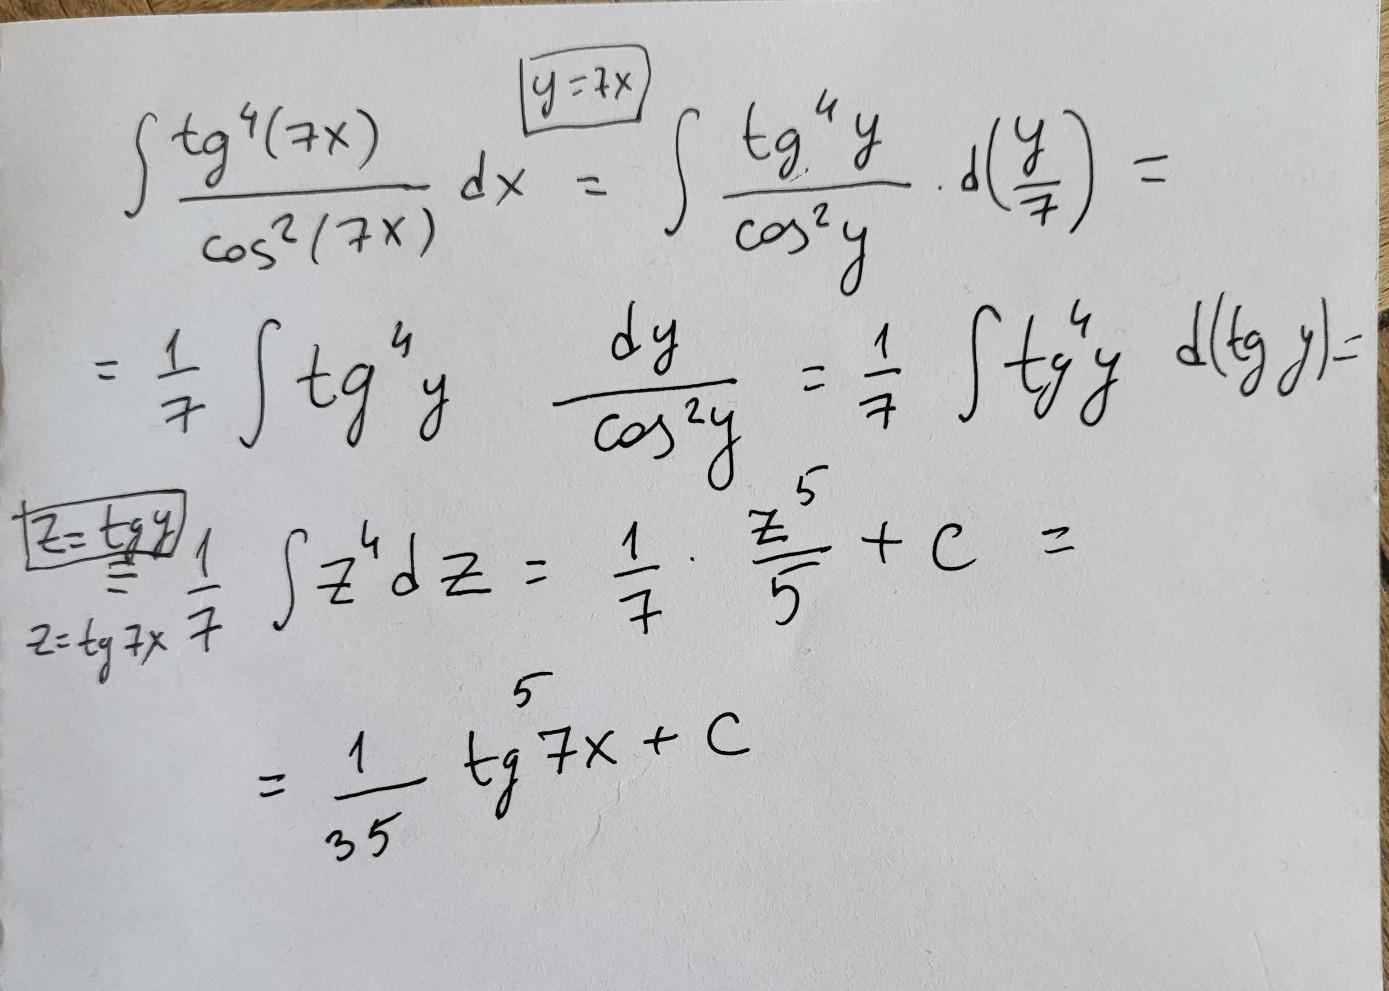 y = 7x
∫ tg⁴(7x) / cos²(7x) dx = ∫ tg⁴y / cos²y · d(y/7) =
= 1/7 ∫ tg⁴y dy / cos²y = 1/7 ∫ tg⁴y d(tg y) =
z = tg y
= 1/7 ∫ z⁴ dz = 1/7 · z⁵/5 + C =
z = tg 7x
= 1/35 tg⁵ 7x + C